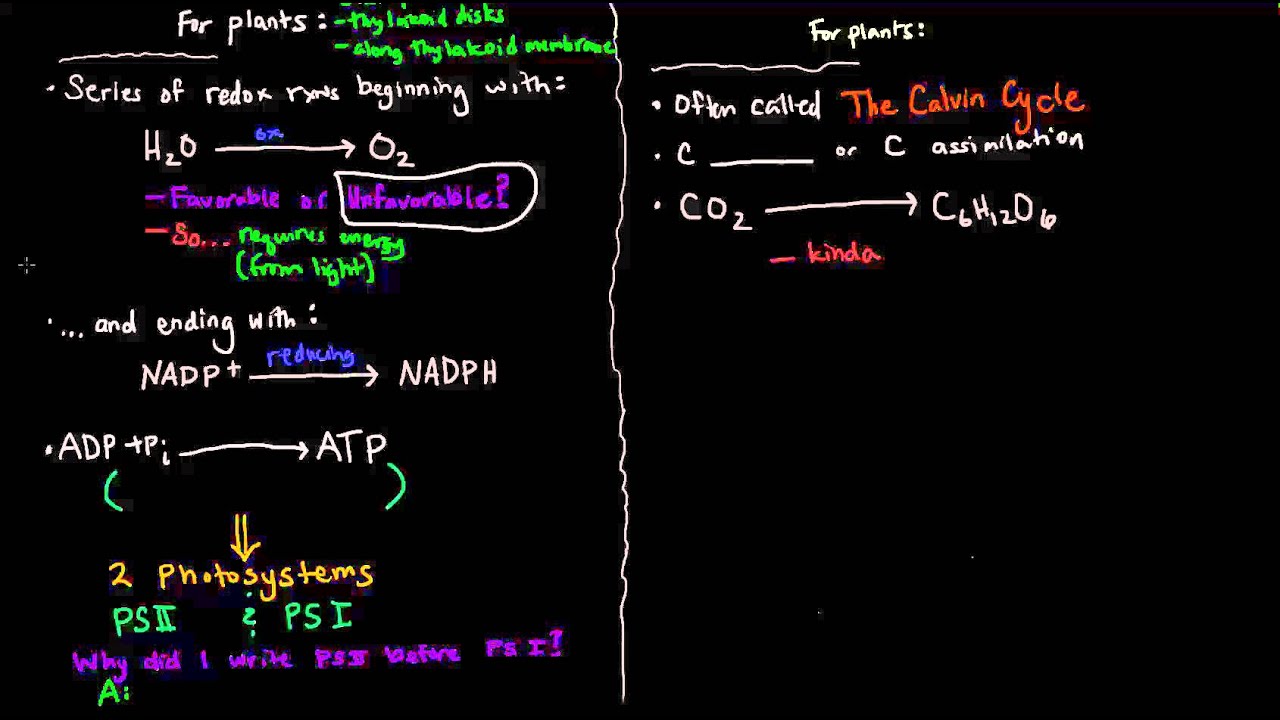 For plants: -thylakoid disks
- along thylakoid membrane
• Series of redox rxns beginning with:
ox
H₂O ⟶ O₂
- Favorable or Unfavorable?
- So... requires energy
(from light)
• ... and ending with:
reducing
NADP+ ⟶ NADPH
• ADP + Pi ⟶ ATP
( )
⇓
2 Photosystems
PS II & PS I
Why did I write PSII before PS I?
A:
For plants:
• Often called The Calvin Cycle
• C ________ or C assimilation
• CO₂ ⟶ C₆H₁₂O₆
- kinda